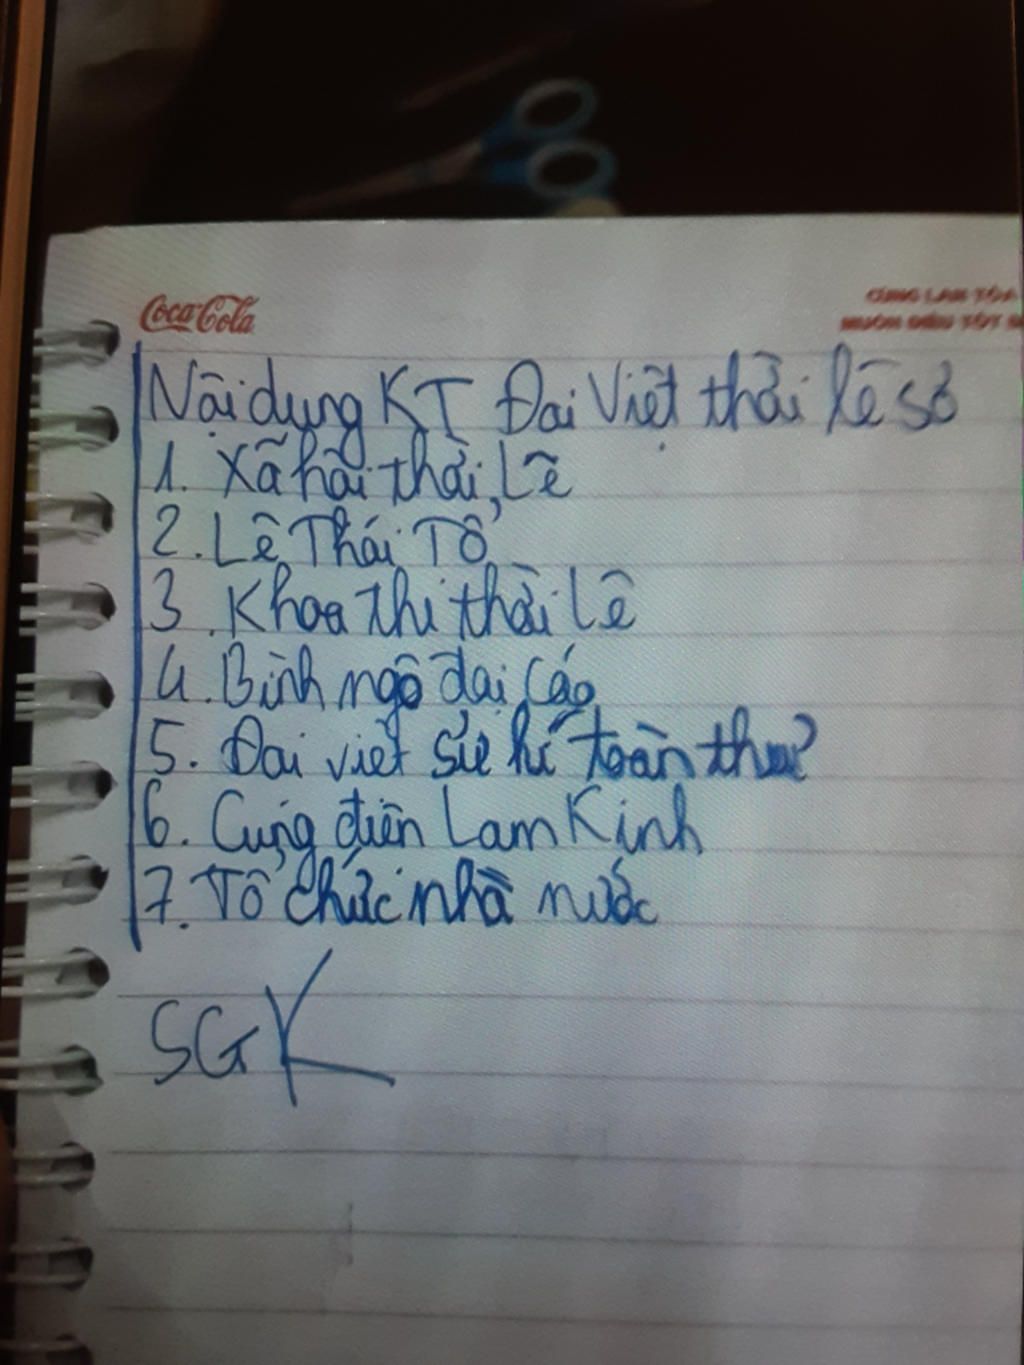 Coca-Cola
CÙNG LAN TỎA
MUÔN ĐIỀU TỐT
Nội dung KT Đại Việt thời lê sơ
1. Xã hội thời Lê
2. Lê Thái Tổ
3. Khoa thi thời Lê
4. Bình ngô đại cáo
5. Đại việt sử kí toàn thư
6. Cung điện Lam Kinh
7. Tổ chức nhà nước
SGK